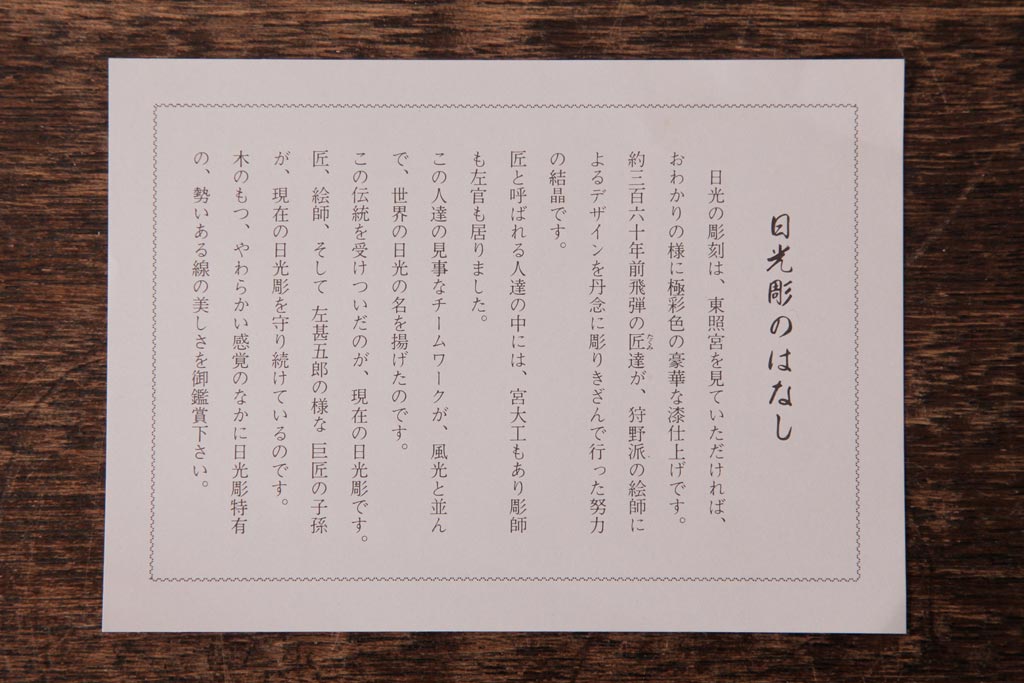 日光彫のはなし
日光の彫刻は、東照宮を見ていただければ、
おわかりの様に極彩色の豪華な漆仕上げです。
約三百六十年前飛弾の匠達が、狩野派の絵師に
よるデザインを丹念に彫りきざんで行った努力
の結晶です。
匠と呼ばれる人達の中には、宮大工もあり彫師
も左官も居りました。
この人達の見事なチームワークが、風光と並ん
で、世界の日光の名を揚げたのです。
この伝統を受けついだのが、現在の日光彫です。
匠、絵師、そして 左甚五郎の様な 巨匠の子孫
が、現在の日光彫を守り続けているのです。
木のもつ、やわらかい感覚のなかに日光彫特有
の、勢いある線の美しさを御鑑賞下さい。